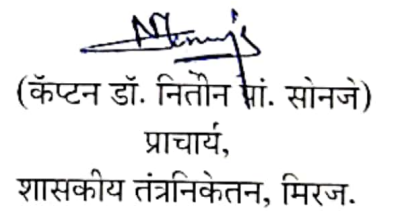 (कॅप्टन डॉ. नितीन पां. सोनजे)
प्राचार्य,
शासकीय तंत्रनिकेतन, मिरज.